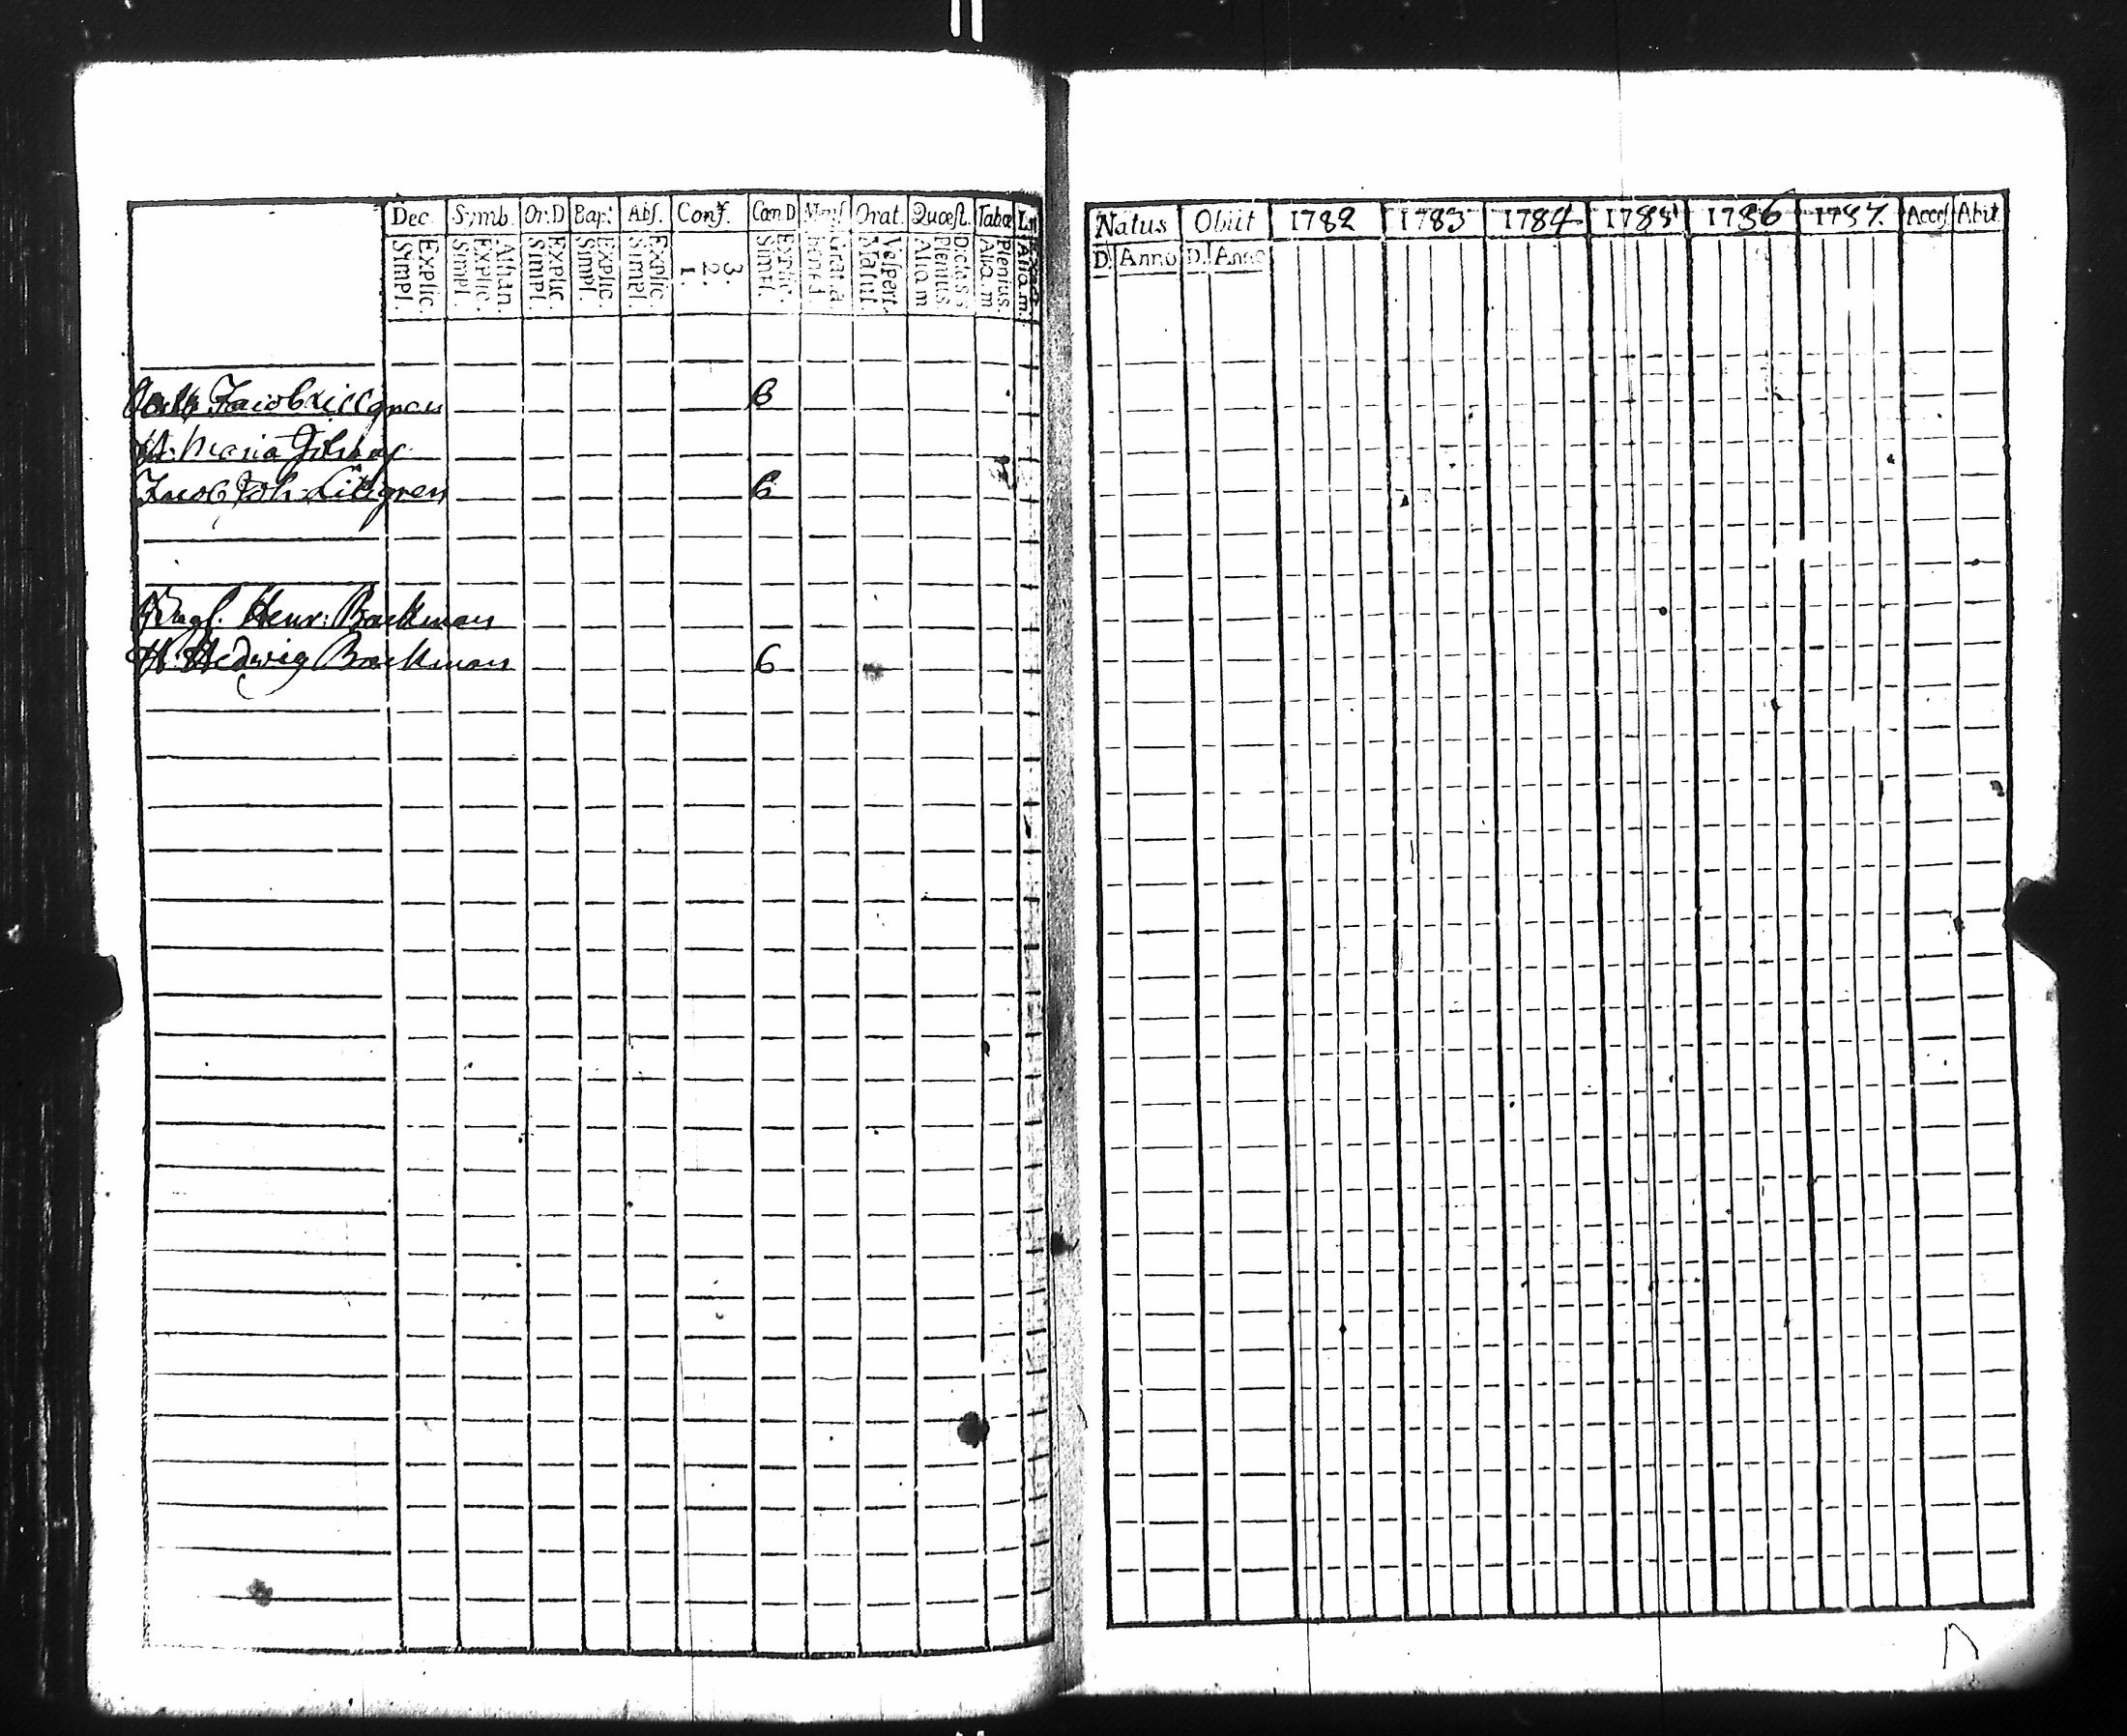 Dec. Symb. Or.D Bapt Abſ. Conf. Cœn.D Menſ Orat. Quœſt. Tabœ
Explic. Simpl. Athan. Explic. Simpl. Explic. Simpl. Explic. Simpl. Explic. Simpl. 3. 2. 1. Explic. Simpl. Gratia Bened Veſpert. Matut. Dictis s Plenius Aliq.m Plenius. Aliq.m Aliq.m.
Jacob Lillgren
H. Maria
Jacob Joh. Lillgren
Henr. Backman
H. Hedwig Backman
6
6
6
Natus Obiit 1782 1783 1784 1785 1786 1787. Acceſ Abit.
D. Anno D. Anno